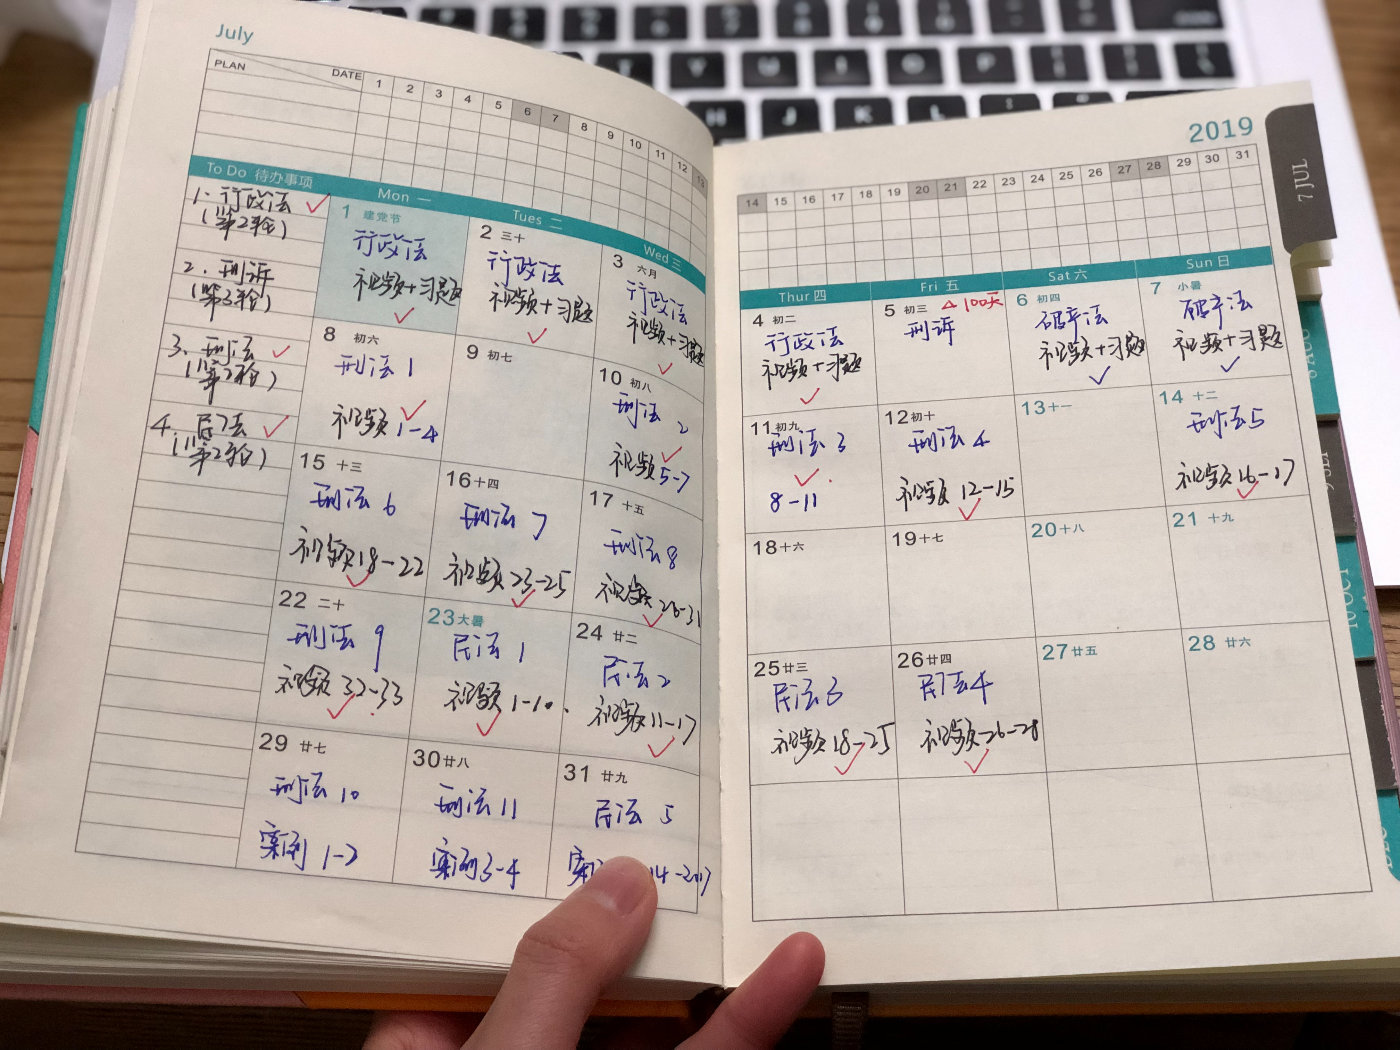 July
2019
PLAN
DATE
1 2 3 4 5 6 7 8 9 10 11 12 13
14 15 16 17 18 19 20 21 22 23 24 25 26 27 28 29 30 31
7 JUL
To Do 待办事项
1. 行政法
(第2轮)
2. 刑诉
(第3轮)
3. 刑法
(第2轮)
4. 民法
(第2轮)
Mon 一
Tues 二
Wed 三
Thur 四
Fri 五
Sat 六
Sun 日
1 建党节
行政法
视频+习题
2 三十
行政法
视频+习题
3 六月
行政法
视频+习题
4 初二
行政法
视频+习题
5 初三 △100天
刑诉
6 初四
破产法
视频+习题
7 小暑
破产法
视频+习题
8 初六
刑法 1
视频 1-4
9 初七
10 初八
刑法 2
视频 5-7
11 初九
刑法 3
8-11
12 初十
刑法 4
视频 12-15
13 十一
14 十二
刑法 5
视频 16-17
15 十三
刑法 6
视频 18-22
16 十四
刑法 7
视频 23-25
17 十五
刑法 8
视频 26-31
18 十六
19 十七
20 十八
21 十九
22 二十
刑法 9
视频 32-33
23 大暑
民法 1
视频 1-10
24 廿二
民法 2
视频 11-17
25 廿三
民法 3
视频 18-25
26 廿四
民法 4
视频 26-28
27 廿五
28 廿六
29 廿七
刑法 10
案例 1-2
30 廿八
刑法 11
案例 3-4
31 廿九
民法 5
10 OCT